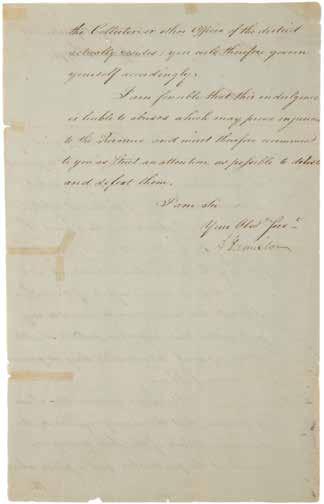 the Collector or other Officer of the district
actually resides; you will therefore govern
yourself accordingly.
I am sensible that this indulgence
is liable to abuses which may prove injurious
to the Revenue and must therefore recommend
to you as strict an attention as possible to detect
and defeat them.
I am Sir
Your Obed.t Serv.t
A Hamilton